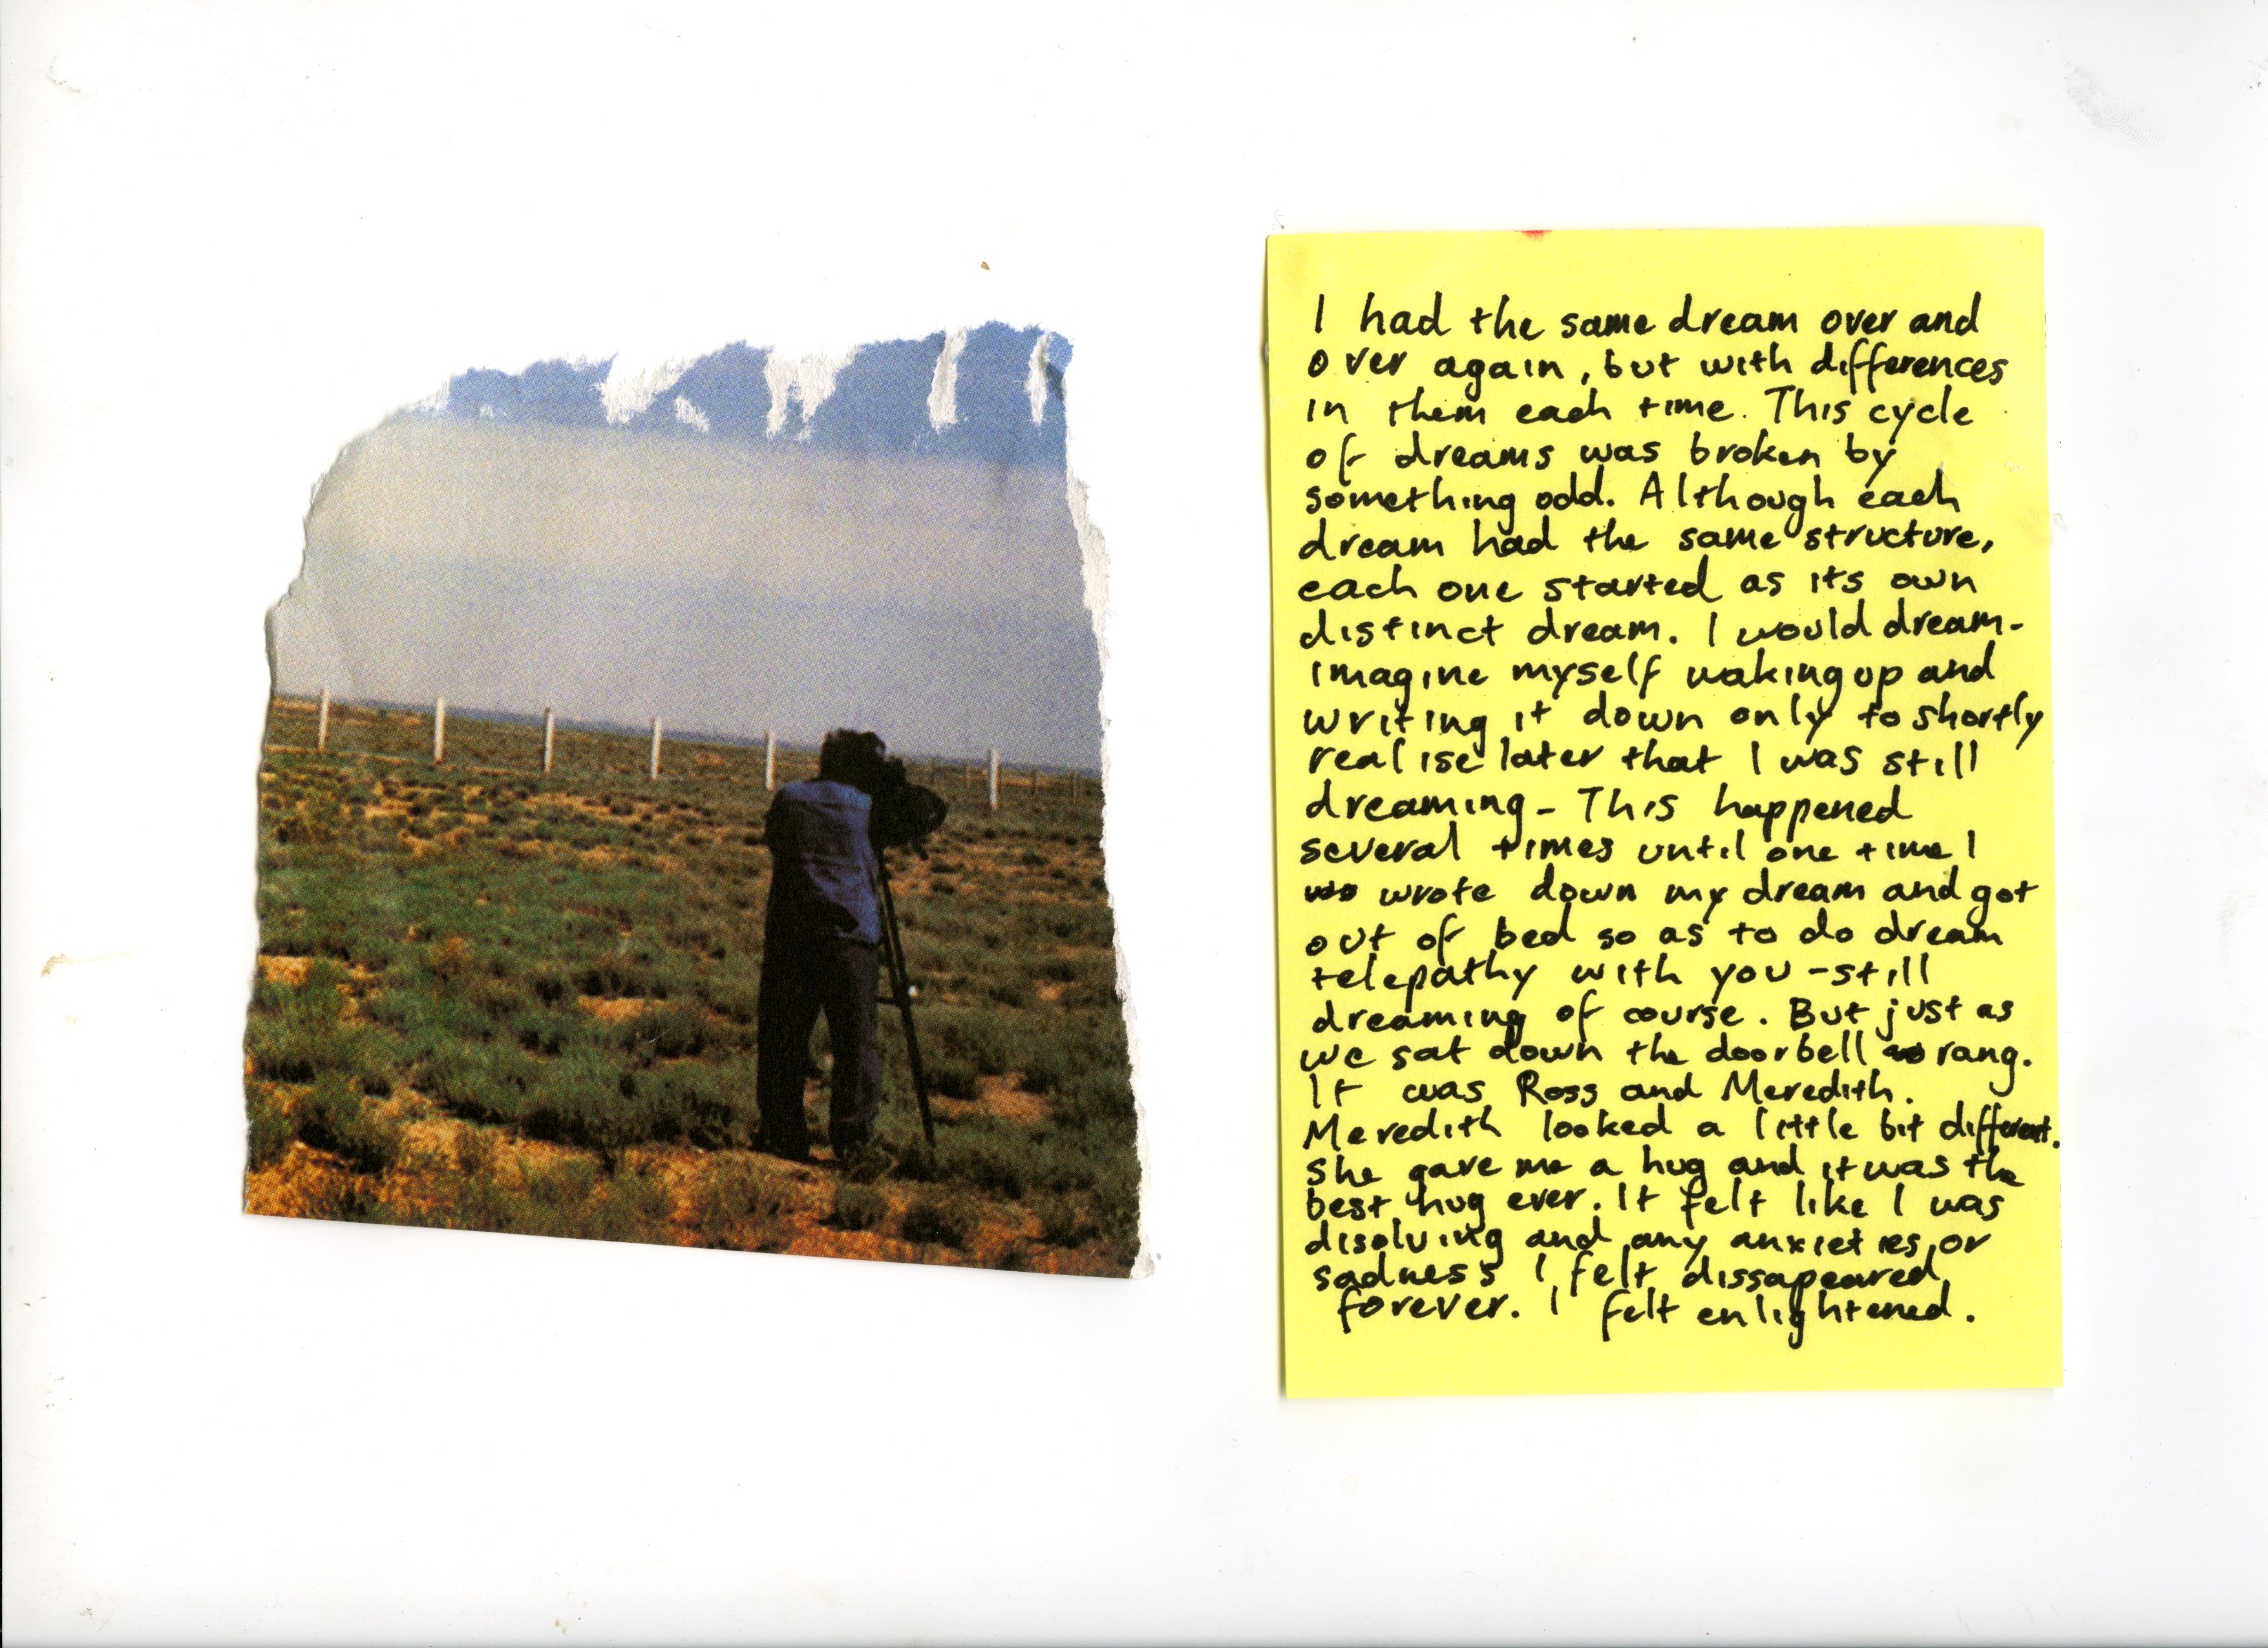 I had the same dream over and
over again, but with differences
in them each time. This cycle
of dreams was broken by
something odd. Although each
dream had the same structure,
each one started as its own
distinct dream. I would dream-
imagine myself waking up and
writing it down only to shortly
realise later that I was still
dreaming - This happened
several times until one time I
wrote down my dream and got
out of bed so as to do dream
telepathy with you - still
dreaming of course. But just as
we sat down the doorbell rang.
It was Ross and Meredith.
Meredith looked a little bit different.
She gave me a hug and it was the
best hug ever. It felt like I was
disolving and any anxieties or
sadness I felt dissapeared
forever. I felt enlightened.